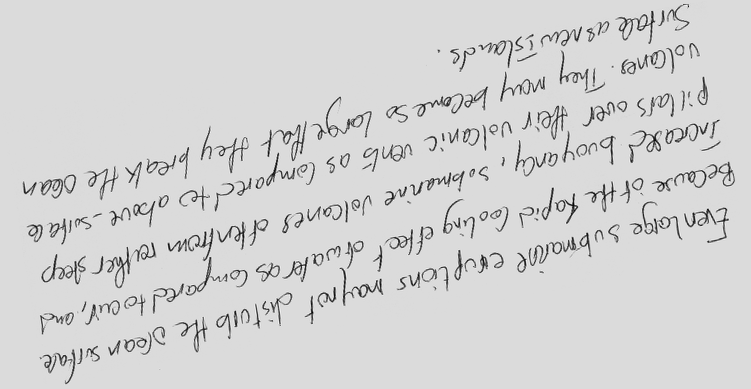 Even large submarine eruptions may not disturb the ocean surface.
Because of the rapid cooling effect of water as compared to air, and
increased buoyancy, submarine volcanoes often from rather steep
pillars over their volcanic vents as compared to above-surface
volcanes. They may become so large that they break the ocean
surface as new islands.